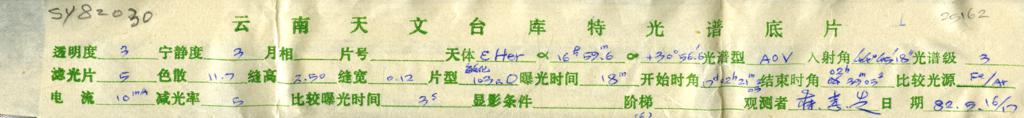 SY82030
云南天文台库特光谱底片
20162
透明度 3 宁静度 3 月相 片号 天体 ε Her α 16h 59.6m δ +30°56.6 光谱型 A0V 入射角 光谱级 3
滤光片 5 色散 11.7 缝高 2.50 缝宽 0.12 片型 103aO 曝光时间 18m 开始时角 结束时角 比较光源 Fe/Ar
电流 10mA 减光率 5 比较曝光时间 3s 显影条件 阶梯 观测者 日期 82.5.16/17